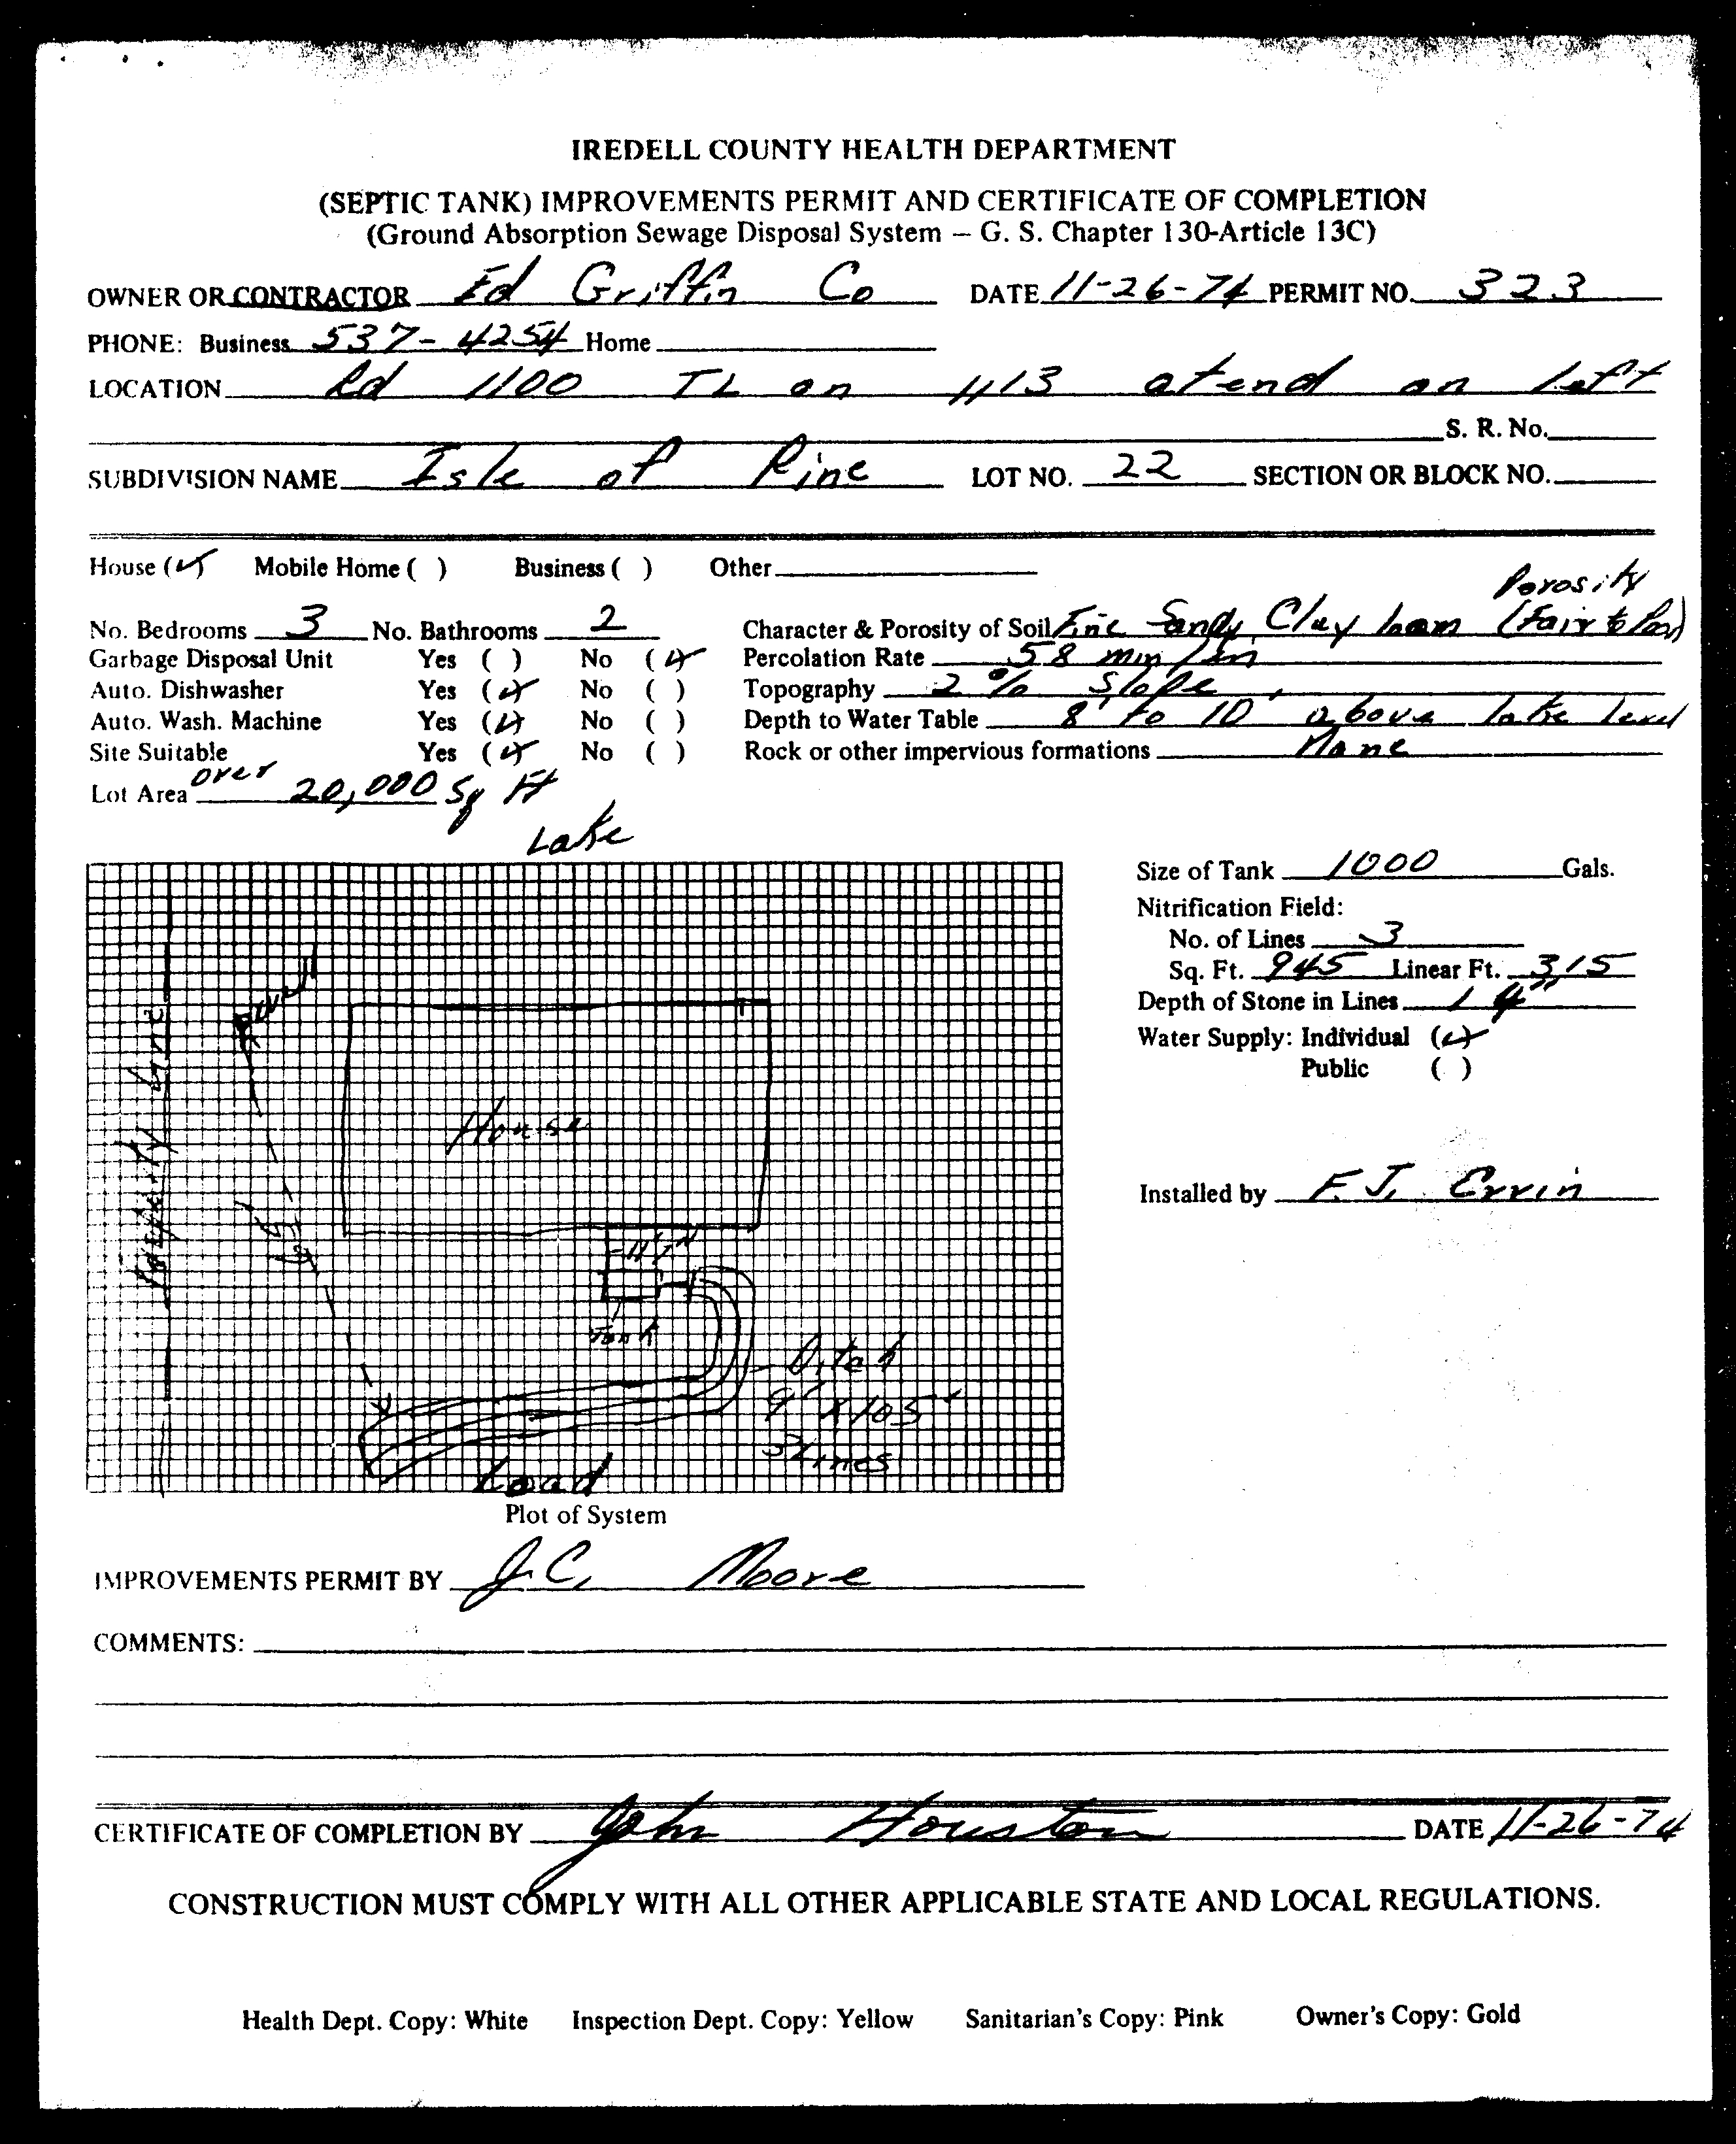 IREDELL COUNTY HEALTH DEPARTMENT
(SEPTIC TANK) IMPROVEMENTS PERMIT AND CERTIFICATE OF COMPLETION
(Ground Absorption Sewage Disposal System – G. S. Chapter 130-Article 13C)
OWNER OR CONTRACTOR Ed Griffin Co DATE 11-26-74 PERMIT NO. 323
PHONE: Business 537-4254 Home
LOCATION Rd 1100 TL on 1113 at end on left
S. R. No.
SUBDIVISION NAME Isle of Pine LOT NO. 22 SECTION OR BLOCK NO.
House (✓) Mobile Home ( ) Business ( ) Other
Porosity
No. Bedrooms 3 No. Bathrooms 2 Character & Porosity of Soil Fine Sandy Clay loam (Fair to Poor)
Garbage Disposal Unit Yes ( ) No (✓) Percolation Rate 58 min/in
Auto. Dishwasher Yes (✓) No ( ) Topography 2% Slope
Auto. Wash. Machine Yes (✓) No ( ) Depth to Water Table 8' to 10' above lake level
Site Suitable Yes (✓) No ( ) Rock or other impervious formations None
Lot Area over 20,000 Sq Ft
Lake
Size of Tank 1000 Gals.
Nitrification Field:
No. of Lines 3
Sq. Ft. 945 Linear Ft. 315
Depth of Stone in Lines 14"
Water Supply: Individual (✓)
Public ( )
Installed by F.J. Ervin
well
Property Line
House
Tank
Ditch
9' x 105'
3 Lines
Road
Plot of System
IMPROVEMENTS PERMIT BY J.C. Moore
COMMENTS:
CERTIFICATE OF COMPLETION BY John Houston DATE 11-26-74
CONSTRUCTION MUST COMPLY WITH ALL OTHER APPLICABLE STATE AND LOCAL REGULATIONS.
Health Dept. Copy: White Inspection Dept. Copy: Yellow Sanitarian's Copy: Pink Owner's Copy: Gold